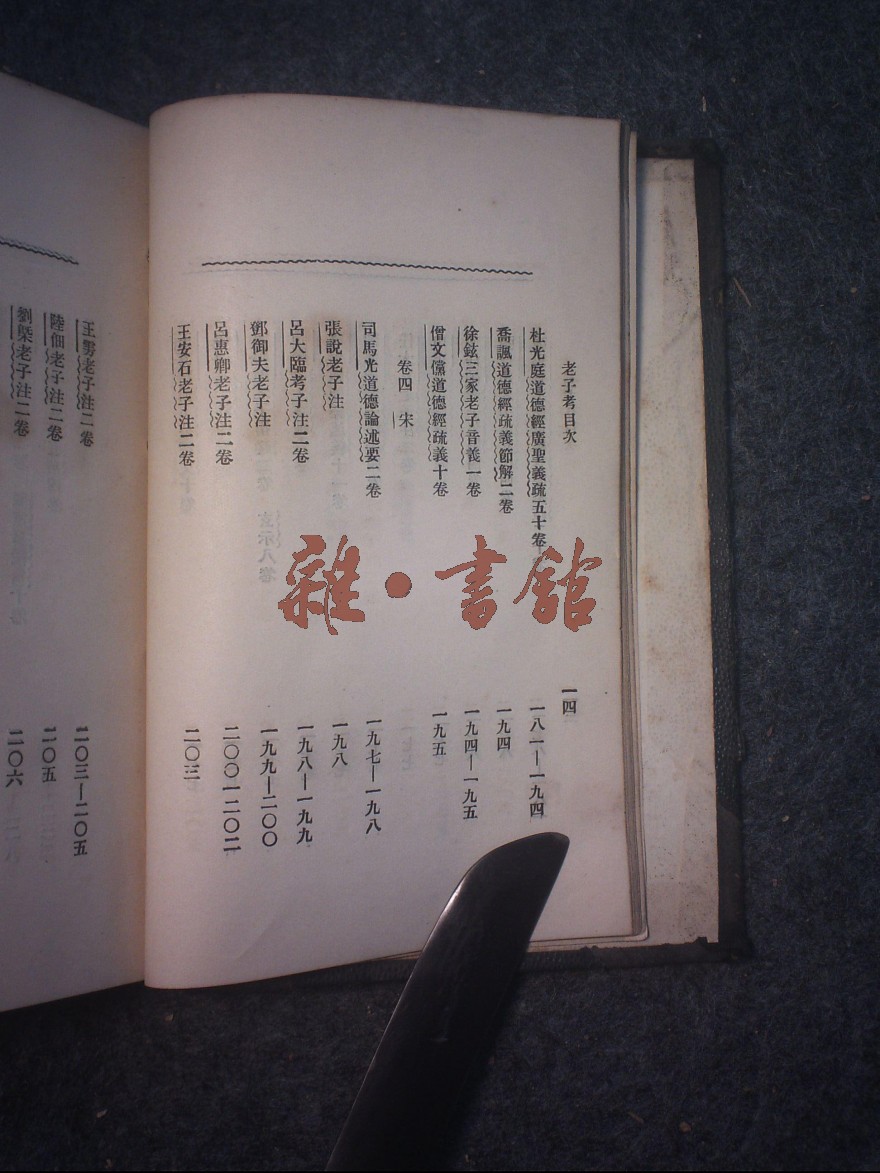 老子考目次 一四
杜光庭道德經廣聖義疏五十卷 一八一—一九四
喬諷道德經疏義節解二卷 一九四
徐鉉三家老子音義一卷 一九四—一九五
僧文儻道德經疏義十卷 一九五
卷四 宋
司馬光道德論述要二卷 一九七—一九八
張說老子注 一九八
呂大臨考子注二卷 一九八—一九九
鄧御夫老子注 一九九—二〇〇
呂惠卿老子注二卷 二〇〇—二〇二
王安石老子注二卷 二〇三
王雱老子注二卷 二〇三—二〇五
陸佃老子注二卷 二〇五
劉槩老子注二卷 二〇六
雜·書館